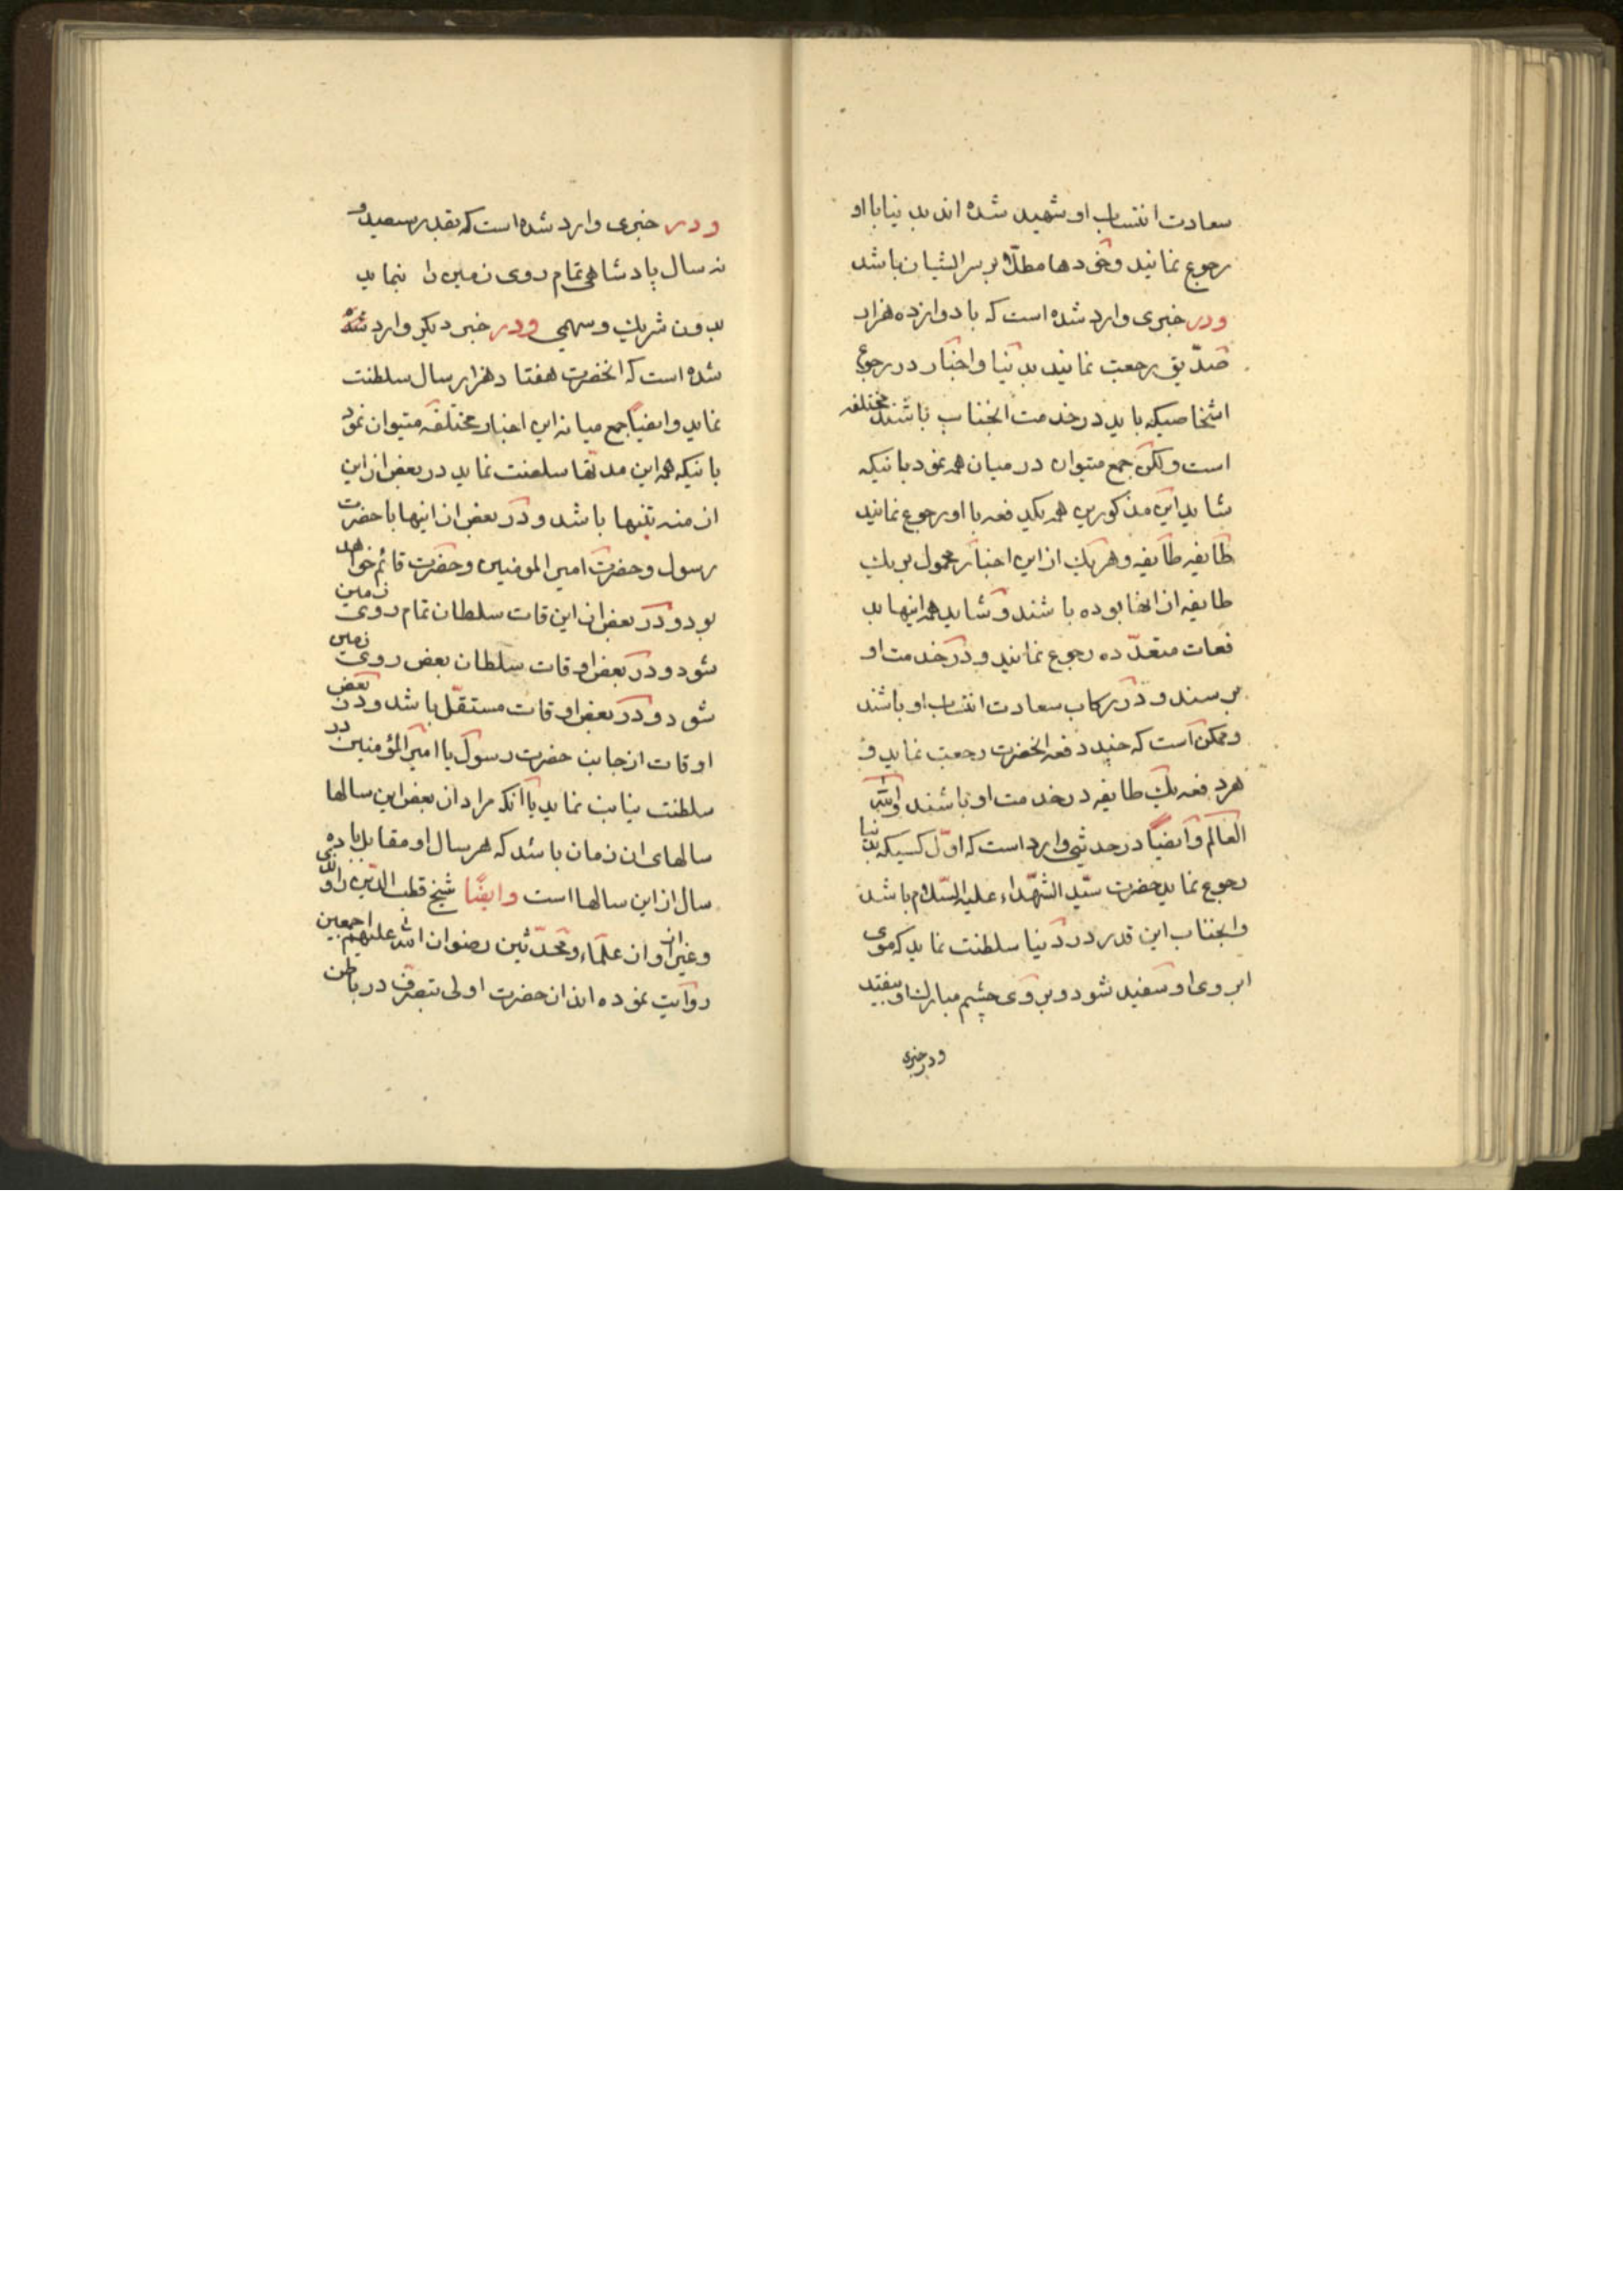 سعادت انتساب او شهید شده اند بد نیا با او
رجوع نمایند و خودها مطلّا بر سر ایشان باشد
و در خبری وارد شده است که با دوازده هزار
صدّیق رجعت نمایند بد نیا و اخبار در رجوع
اشخاصیکه باید در خدمت انجناب باشند مختلفه
است و لکن جمع میتوان در میان همه نمود بانیکه
شاید این مذکورین همه یکدفعه با او رجوع نمایند
طایفه طایفه و هر یك از این اخبار محمول بر یك
طایفه از انها بوده باشند و شاید همه اینها بد
فعات متعدّده رجوع نمایند و در خدمت او
برسند و در رکاب سعادت انتساب او باشند
و ممکن است که چند دفعه انحضرت رجعت نماید و
هر دفعه یك طایفه در خدمت او باشند و الله
العالم و ایضاً در حدیثی وارد است که اوّل کسیکه بدنیا
رجوع نماید حضرت سیّد الشهداء علیه السّلام باشد
و انجناب این قدر در دنیا سلطنت نماید که موی
ابروی او سفید شود و بر وی چشم مبارك او بیفتد
و در خبری
و در خبری وارد شده است که بقدر سیصد و
نه سال پادشاهی تمام روی زمین را بنماید
بدون شریك و سهیمی و در خبر دیکر وارد شده
شده است که انحضرت هفتاد هزار سال سلطنت
نماید و ایضاً جمع میانه این اخبار مختلفه میتوان نمود
بانیکه همه این مدتها سلطنت نماید در بعض از این
ازمنه تنها باشد و در بعض از اینها با حضرت
رسول و حضرت امیر المومنین و حضرت قائم خواهد
بود و در بعض از این قات سلطان تمام روی زمین
شود و در بعض اوقات سلطان بعض روی زمین
شود و در بعض اوقات مستقلّ باشد و در بعض
اوقات از جانب حضرت رسول یا امیر المؤمنین در
سلطنت نیابت نماید یا آنکه مراد از بعض این سالها
سالهای ان زمان باشد که هر سال او مقابل با ده
سال از این سالها است و ایضًا شیخ قطب الدّین راوندی
و غیر او از علماء و محدّثین رضوان الله علیهم اجمعین
روایت نموده اند از ان حضرت اولی بتصرّف در باطن